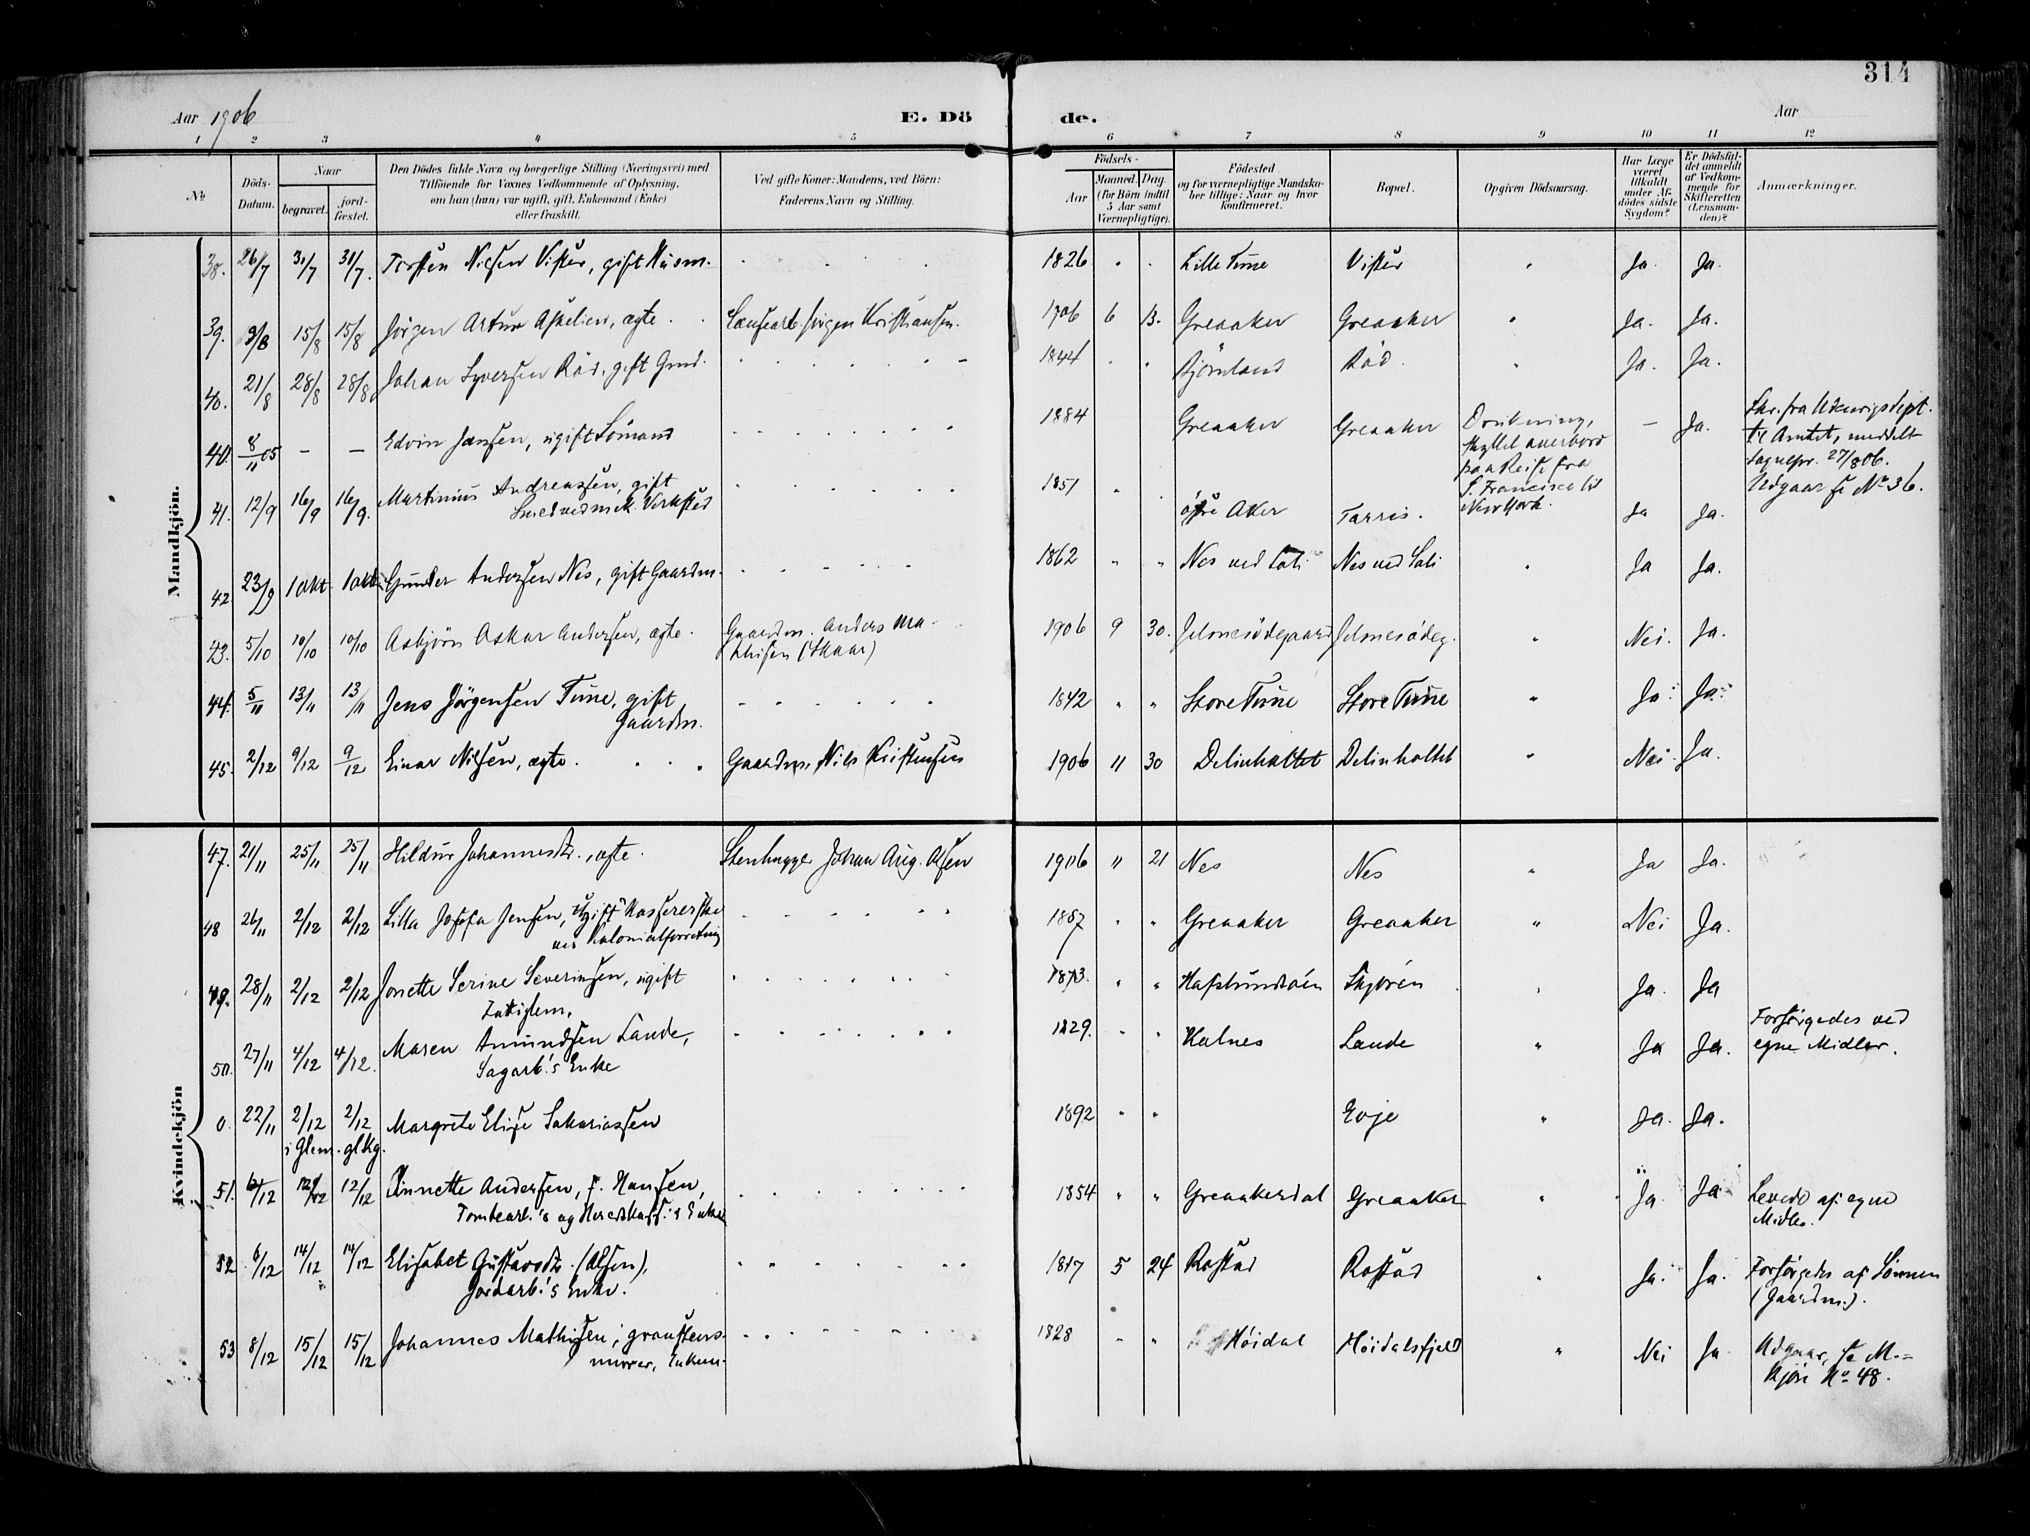 314
Aar 1906 E. Döde. Aar
1 2 3 4 5 6 7 8 9 10 11 12
No
Döds-Datum.
Naar
begravet.
jord-fæstet.
Den Dödes fulde Navn og borgerlige Stilling (Næringsvei) med
Tilföiende for Voxnes Vedkommende af Oplysning,
om han (hun) var ugift, gift, Enkemand (Enke)
eller fraskilt.
Ved gifte Koner: Mandens, ved Börn:
Faderens Navn og Stilling.
Födsels-
Aar
Maaned. Dag.
(for Börn indtil
5 Aar samt
Værnepligtige).
Födested
og for værnepligtige Mandska-
ber tillige: Naar og hvor
konfirmeret.
Bopæl.
Opgiven Dödsaarsag.
Har Læge
været
tilkaldt
under Af-
dödes sidste
Sygdom?
Er Dödsfal-
det anmeldt
af Vedkom-
mende for
Skifteretten
(Lensman-
den)?
Anmærkninger.
Mandkjön.
38. 26/7 31/7 31/7. Torsten Nilsen Vister, gift Husm. 1826 Lille Tune Vister Ja. Ja.
39. 9/8 15/8 15/8 Jörgen Artur Askelien, ægte. Lænsearb. Jörgen Kristiansen. 1906 6 13. Greaaker Greaaker Ja. Ja.
40. 21/8 28/8 28/8 Johan Syversen Röd, gift Grmd. 1844 Björnland Röd Ja. Ja.
40. 8/11 05 – – Edvin Jensen, ugift Sömand 1884 Greaaker Greaaker Drukning,
skyllet overbord
paa Reise fra
S. Francisco til
New York. – Ja. Skr. fra Udenrigsdept.
til Amtet, meddelt
Sognepr. 27/8 06.
Udgaar se No 36.
41. 12/9 16/9 16/9. Martinius Andreassen, gift
Smed ved mek. Verksted 1851 östre Aker Tarris. Ja Ja.
42 23/9 1 okt. 1 okt. Gunder Andersen Nes, gift Gaardm. 1862 Nes ved Soli Nes ved Soli Ja Ja.
43. 5/10 10/10 10/10 Asbjörn Oskar Andersen, ægte. Gaardm. Anders Ma-
thisen (Skaar) 1906 9 30. Jelsnesödegaard Jelsnesödeg. Nei. Ja.
44. 5/11 13/11 13/11 Jens Jörgensen Tune, gift
Gaardm. 1842 Store Tune Store Tune Ja Ja
45. 2/12 9/12 9/12 Einar Nilsen, ægte. Gaardm. Nils Kristensen 1906 11 30 Delinholtet Delinholtet Nei. Ja.
Kvindekjön
47. 21/11 25/11 25/11 Hildur Johannesdt., ægte. Stenhugger Johan Aug. Olsen 1906 11 21 Nes Nes Ja Ja.
48 26/11 2/12 2/12 Lilla Josefa Jensen, ugift Kassererske
ved Kolonialforretning 1887 Greaaker Greaaker Nei Ja.
49. 28/11 2/12 2/12 Jonette Serine Severinsen, ugift
Fattiglem. 1873. Hafslundsöen Skjören Ja. Ja
50. 27/11 4/12 4/12. Maren Amundsen Lande,
Sagarb.'s Enke 1829. Kalnes Lande Ja Ja. Forsörgedes ved
egne Midler.
0. 22/11 2/12 2/12 Margrete Elise Sakariassen 1892 Evje Ja. Ja.
i Glem. gl Kg.
51. 12/12 12/12 Annette Andersen, f. Hansen,
Tomtearb.'s og Enke 1854 Greaakerdal Greaaker Ja. Ja Levede af egne
Midler.
52 6/12 14/12 14/12 Elisabet Gustavsdt. (Olsen),
Jordarb.'s Enke. 1817 5 24 Rostad Rostad Ja. Ja. Forsörgedes af Sönnen
(Gaardm.).
53 8/12 15/12 15/12 Johannes Mathisen, graastens-
murer, Enkem. 1828 Höidal Höidalsfjeld Nei Ja Udgaar, se M.-
kjön No 48.